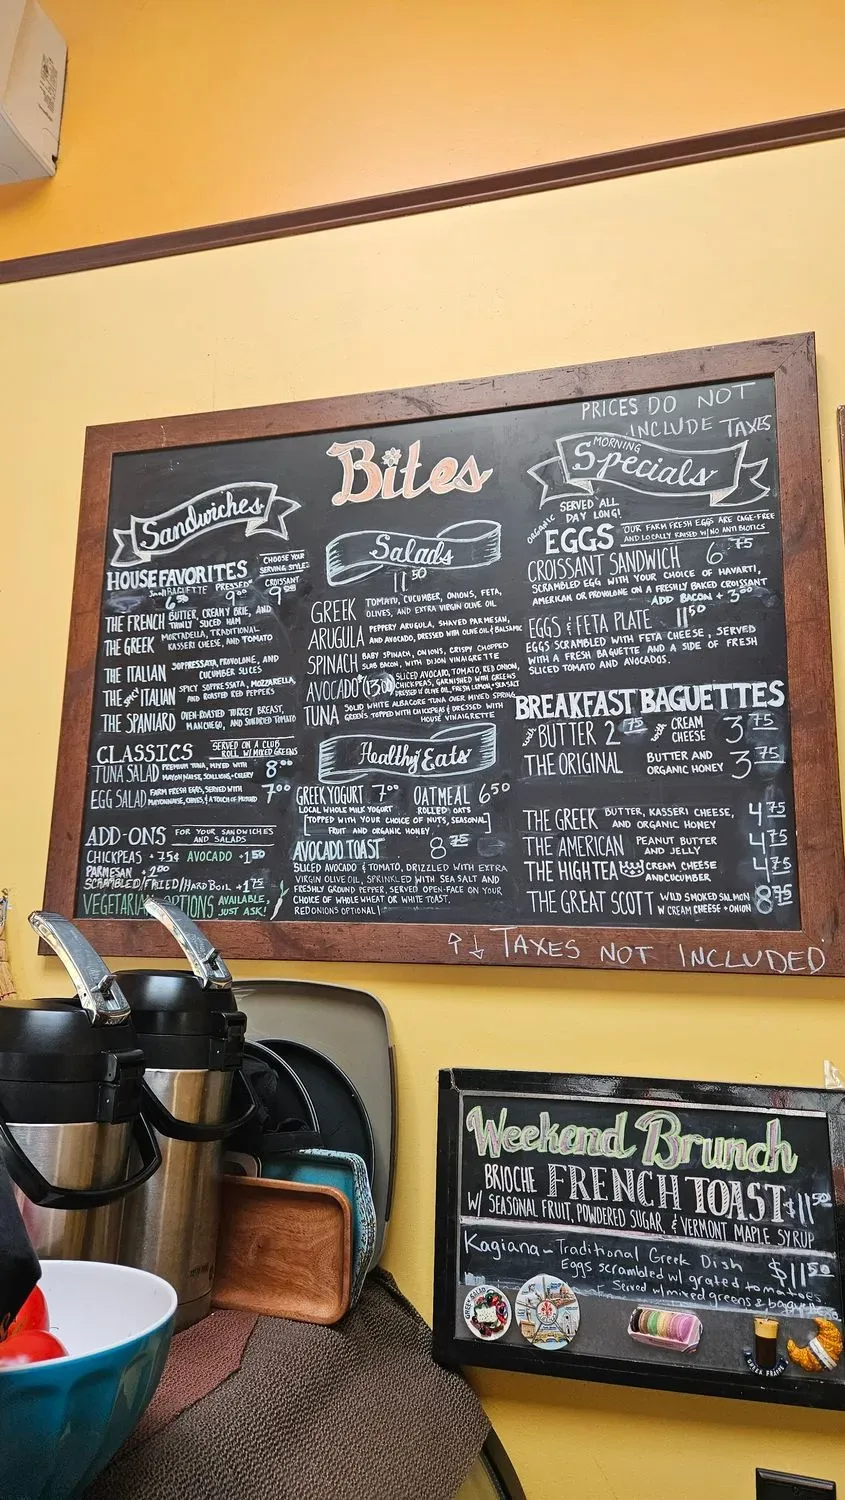 PRICES DO NOT
INCLUDE TAXES
Bites
Sandwiches
HOUSE FAVORITES
CHOOSE YOUR
SERVING STYLE:
Small BAGUETTE PRESSED CROISSANT
6 50 9 00 9 25
THE FRENCH BUTTER, CREAMY BRIE, AND
THINLY SLICED HAM
THE GREEK MORTADELLA, TRADITIONAL
KASSERI CHEESE, AND TOMATO
THE ITALIAN SOPRESSATA, PROVOLONE, AND
CUCUMBER SLICES
THE SPICY ITALIAN SPICY SOPRESSATA, MOZZARELLA,
AND ROASTED RED PEPPERS
THE SPANIARD OVEN-ROASTED TURKEY BREAST,
MANCHEGO, AND SUNDRIED TOMATO
CLASSICS SERVED ON A CLUB
ROLL W/ MIXED GREENS
TUNA SALAD PREMIUM TUNA, MIXED WITH
MAYONNAISE, SCALLIONS + CELERY 8 00
EGG SALAD FARM FRESH EGGS, SERVED WITH
MAYONNAISE, CHIVES, & A TOUCH OF MUSTARD 7 00
ADD-ONS FOR YOUR SANDWICHES
AND SALADS
CHICKPEAS + 75¢ AVOCADO + 1 50
PARMESAN + 2 00
SCRAMBLED/FRIED/HARD BOIL + 1 75
VEGETARIAN OPTIONS AVAILABLE,
JUST ASK!
Salads
11 50
GREEK TOMATO, CUCUMBER, ONIONS, FETA,
OLIVES, AND EXTRA VIRGIN OLIVE OIL
ARUGULA PEPPERY ARUGULA, SHAVED PARMESAN,
AND AVOCADO, DRESSED WITH OLIVE OIL & BALSAMIC
SPINACH BABY SPINACH, ONIONS, CRISPY CHOPPED
SLAB BACON, WITH DIJON VINAIGRETTE
AVOCADO (13 00) SLICED AVOCADO, TOMATO, RED ONION,
CHICKPEAS, GARNISHED WITH GREENS
DRESSED IN OLIVE OIL, FRESH LEMON, + SEA SALT
TUNA SOLID WHITE ALBACORE TUNA OVER MIXED SPRING
GREENS TOPPED WITH CHICKPEAS & DRESSED WITH
HOUSE VINAIGRETTE
Healthy Eats
GREEK YOGURT 7 00 OATMEAL 6 50
LOCAL WHOLE MILK YOGURT ROLLED OATS
[TOPPED WITH YOUR CHOICE OF NUTS, SEASONAL
FRUIT AND ORGANIC HONEY]
AVOCADO TOAST 8 75
SLICED AVOCADO & TOMATO, DRIZZLED WITH EXTRA
VIRGIN OLIVE OIL, SPRINKLED WITH SEA SALT AND
FRESHLY GROUND PEPPER, SERVED OPEN-FACE ON YOUR
CHOICE OF WHOLE WHEAT OR WHITE TOAST.
RED ONIONS OPTIONAL!
MORNING
Specials
SERVED ALL
DAY LONG!
ORGANIC
EGGS OUR FARM FRESH EGGS ARE CAGE-FREE
AND LOCALLY RAISED W/ NO ANTIBIOTICS
CROISSANT SANDWICH 6 75
SCRAMBLED EGG WITH YOUR CHOICE OF HAVARTI,
AMERICAN OR PROVOLONE ON A FRESHLY BAKED CROISSANT
ADD BACON + 3 00
EGGS & FETA PLATE 11 50
EGGS SCRAMBLED WITH FETA CHEESE, SERVED
WITH A FRESH BAGUETTE AND A SIDE OF FRESH
SLICED TOMATO AND AVOCADOS.
BREAKFAST BAGUETTES
BUTTER 2 75 CREAM
CHEESE 3 75
THE ORIGINAL BUTTER AND
ORGANIC HONEY 3 75
THE GREEK BUTTER, KASSERI CHEESE,
AND ORGANIC HONEY 4 75
THE AMERICAN PEANUT BUTTER
AND JELLY 4 75
THE HIGH TEA CREAM CHEESE
AND CUCUMBER 4 75
THE GREAT SCOTT WILD SMOKED SALMON
W CREAM CHEESE + ONION 8 75
↑↓ TAXES NOT INCLUDED
Weekend Brunch
BRIOCHE FRENCH TOAST $11 50
W/ SEASONAL FRUIT, POWDERED SUGAR, & VERMONT MAPLE SYRUP
Kagiana - Traditional Greek Dish $11 50
Eggs scrambled w/ grated tomatoes,
Served w/ mixed greens & baguette